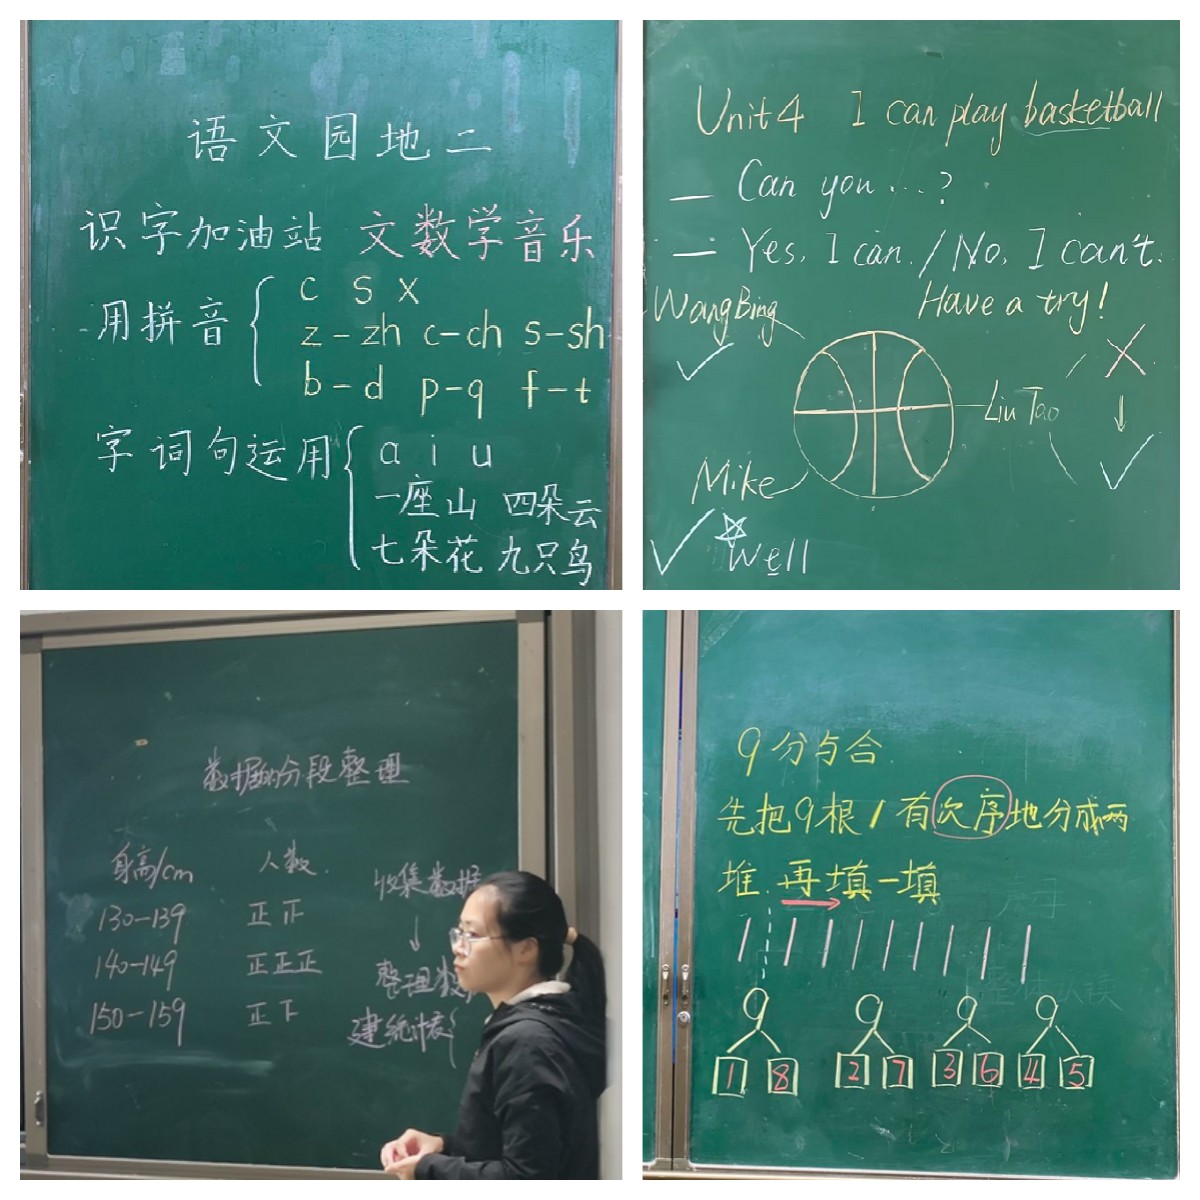 语文园地二
识字加油站 文数学音乐
用拼音
c s x
z-zh c-ch s-sh
b-d p-q f-t
字词句运用
a i u
一座山 四朵云
七朵花 九只鸟
Unit 4 I can play basketball
— Can you ...?
— Yes, I can. / No, I can't.
Have a try!
WangBing
Liu Tao
Mike
Well
数据的分段整理
身高/cm 人数
130-139 正正
140-149 正正正
150-159 正下
收集数据
整理数
建统计表
9分与合
先把9根/有次序地分成两
堆 再填一填
9 9 9 9
1 8 2 7 3 6 4 5